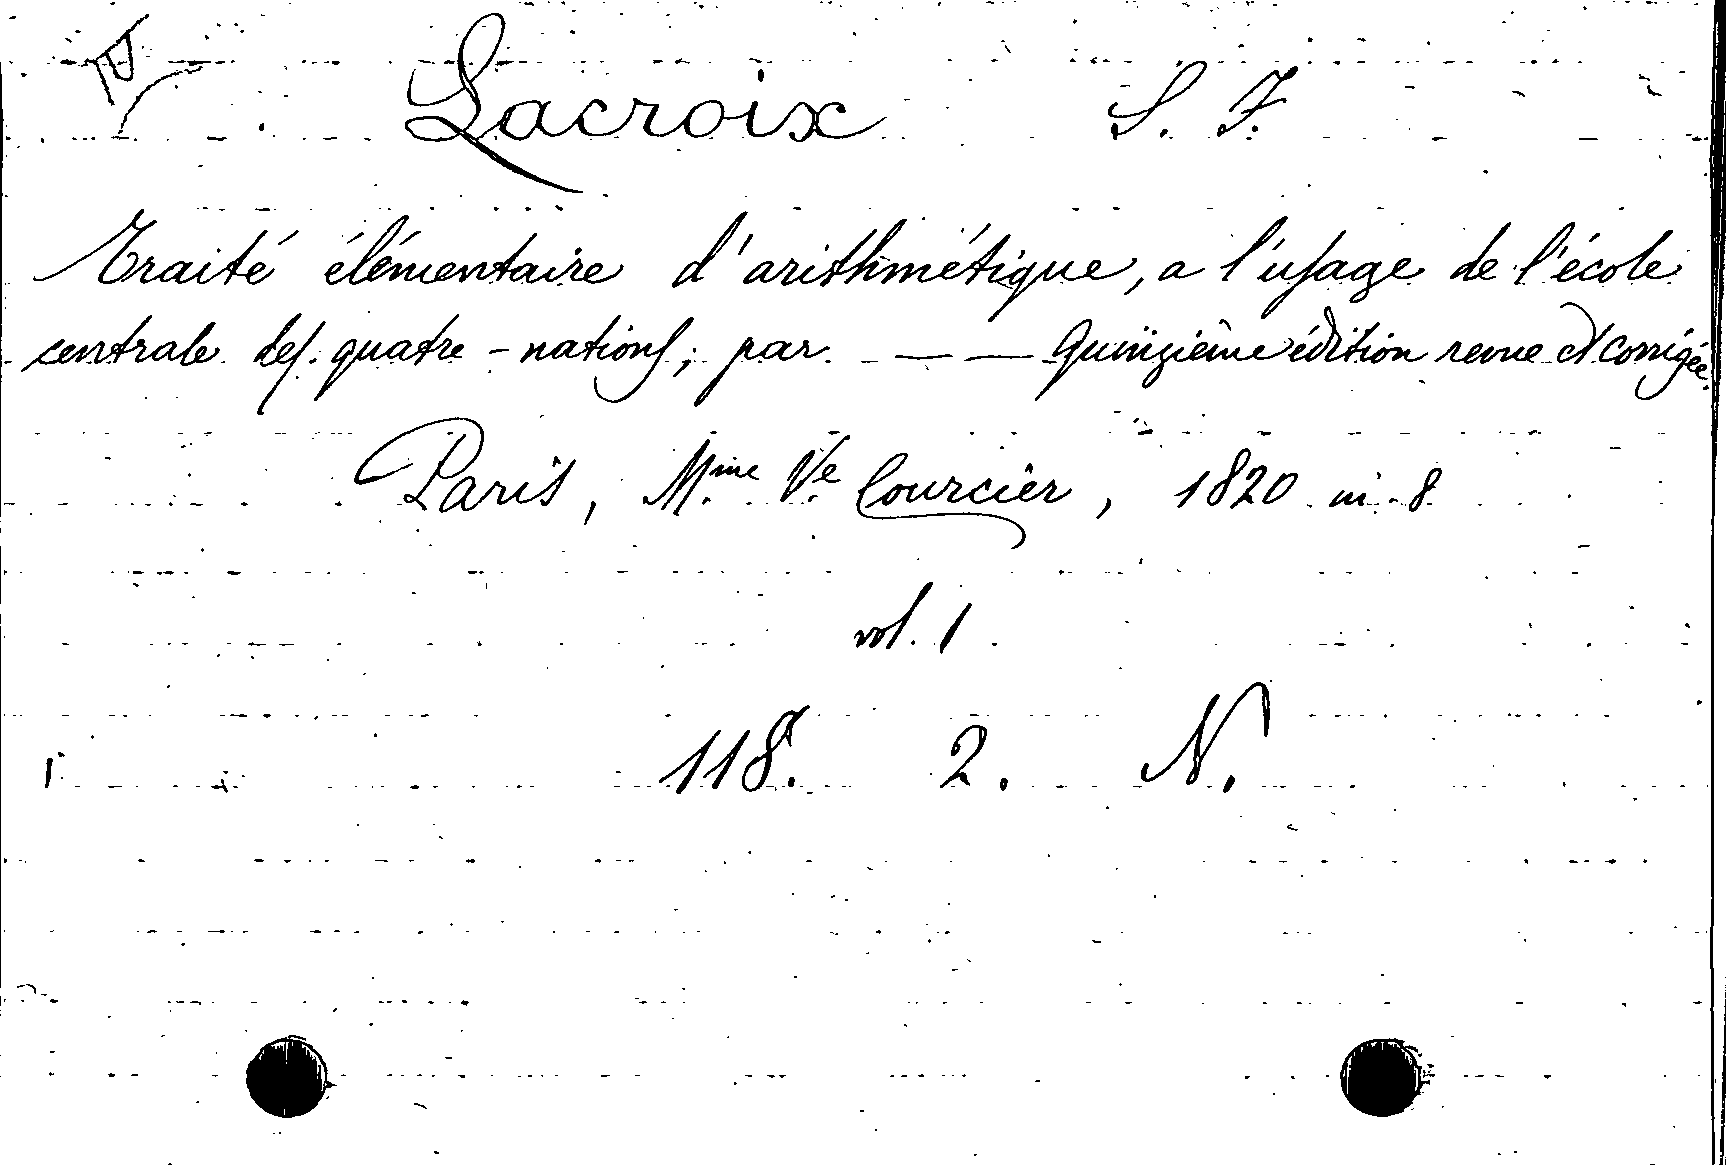 Lacroix S. F.
Traité élémentaire d'arithmétique, a l'usage de l'école
centrale des quatre-nations; par — — Quinzième édition revue et corrigée.
Paris, Mme Ve Courcier, 1820 in-8
vol. 1
118. 2. N.